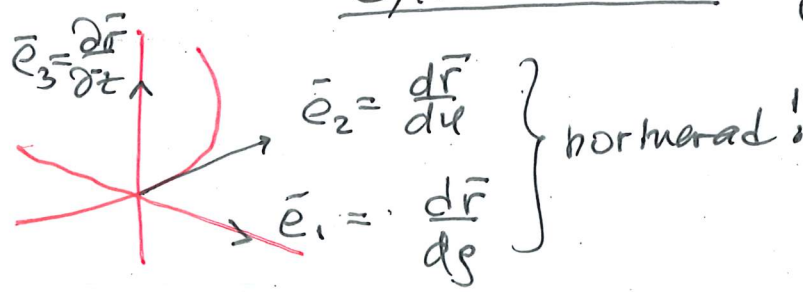 ē₃ = ∂r̄/∂z
ē₂ = dr̄/dφ
ē₁ = dr̄/dρ
normerad!